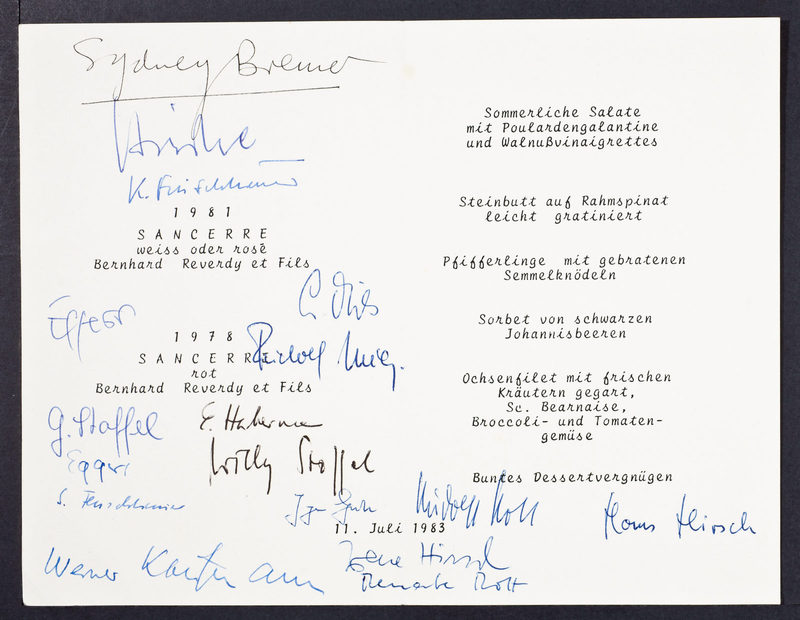 Sydney Bremer
1981
SANCERRE
weiss oder rosé
Bernhard Reverdy et Fils
1978
SANCERRE
rot
Bernhard Reverdy et Fils
G. Staffel
Willy Staffel
Werner
Sommerliche Salate
mit Poulardengalantine
und Walnußvinaigrettes
Steinbutt auf Rahmspinat
leicht gratiniert
Pfifferlinge mit gebratenen
Semmelknödeln
Sorbet von schwarzen
Johannisbeeren
Ochsenfilet mit frischen
Kräutern gegart,
Sc. Bearnaise,
Broccoli- und Tomaten-
gemüse
Buntes Dessertvergnügen
Rudolf Rott
Hans Hirsch
11. Juli 1983
Irene Hirsch
Renate Rott